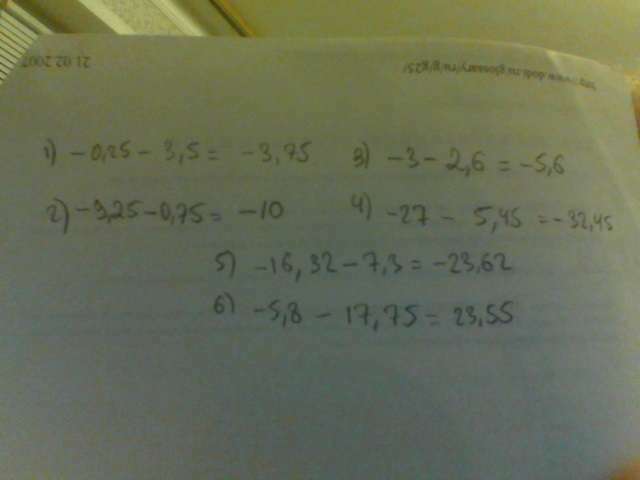 21.02.2007
http://www.dodi.ru/glossary/ru/g/g25/
1) -0,25 - 3,5 = -3,75
3) -3 - 2,6 = -5,6
2) -9,25 - 0,75 = -10
4) -27 - 5,45 = -32,45
5) -16,32 - 7,3 = -23,62
6) -5,8 - 17,75 = 23,55